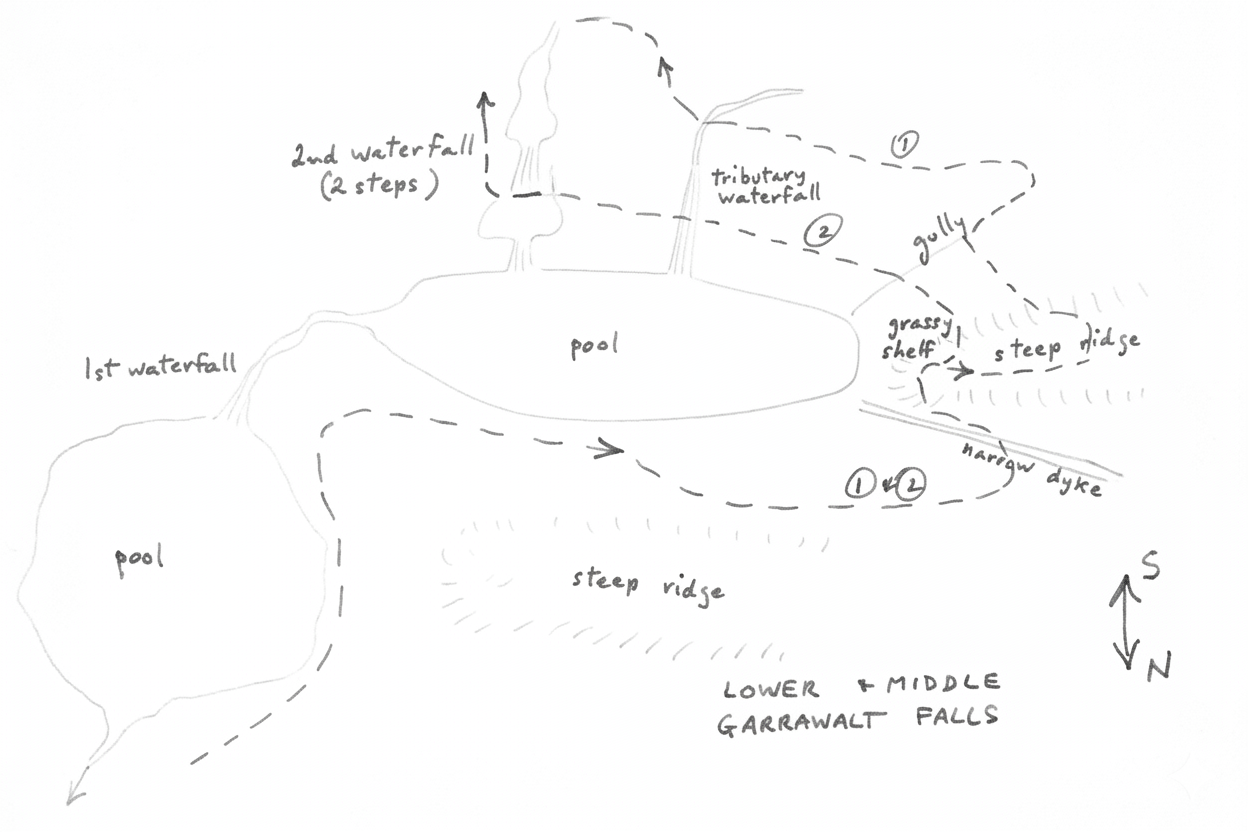 2nd waterfall
(2 steps)
①
tributary
waterfall
②
gully
1st waterfall
pool
grassy
shelf
steep ridge
narrow dyke
① & ②
pool
steep ridge
S
N
LOWER & MIDDLE
GARRAWALT FALLS